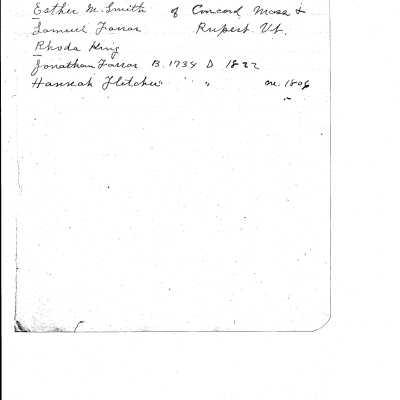 Esther M. Smith of Concord Mass &
Samuel Farrar Rupert Vt.
Rhoda King
Jonathan Farrar B. 1734 D 1822
Hannah Fletcher " " m. 1806